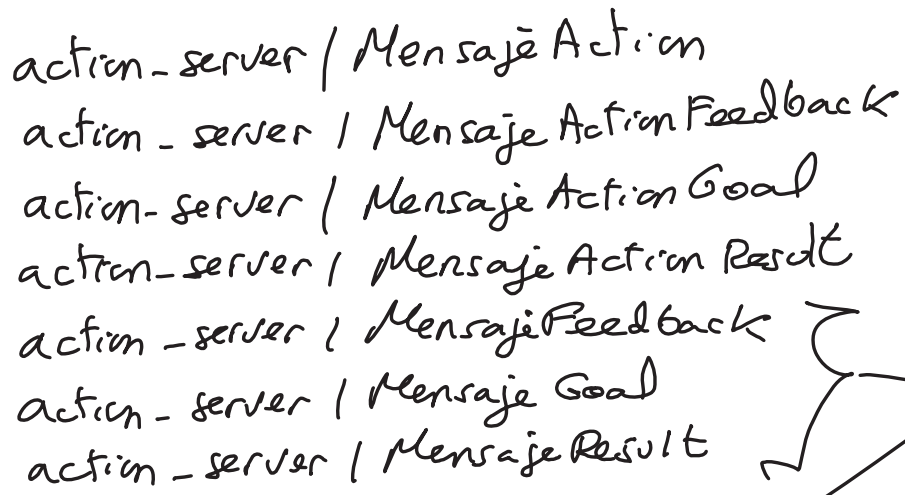 action_server/MensajeAction
action_server/MensajeActionFeedback
action_server/MensajeActionGoal
action_server/MensajeActionResult
action_server/MensajeFeedback
action_server/MensajeGoal
action_server/MensajeResult